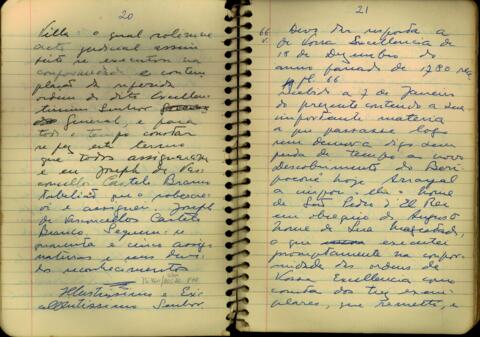 20
Villa: o qual solemne
acto judicial assim
feito se executou na
conformidade e contem-
plação da referida
ordem do dito Excellen-
tissimo Senhor
General, e para
todo o tempo constar
se fez este termo
que todos assignarão
e eu Joseph de Vas-
concellos Castelo Branco
Tabelião que o sobescre-
vi e assignei. Joseph
de Vasconcellos Castelo
Branco, Seguem-se
e cinco assig-
naturas e seus devi-
dos reconhecimentos
Illustrissimo e Ex-
cellentissimo Senhor.
21
66 v. Devo dar resposta a
de Vossa Excellencia de
18 de Dezembro do
anno passado de 1780
fl. 66
recebida a 7 de Janeiro
do presente contendo a sua
importante materia
a que passasse logo
sem demora digo sem
perda de tempo ao novo
Descobrimento do Beri-
poconé hoje Arrayal
a impor-lhe o nome
de São Pedro d'El Rei
em obsequio do Augusto
nome de Sua Magestade,
o que executei
promptamente na confor-
midade das ordens de
Vossa Excellencia como
consta dos tres exem-
plares, que remetto, e